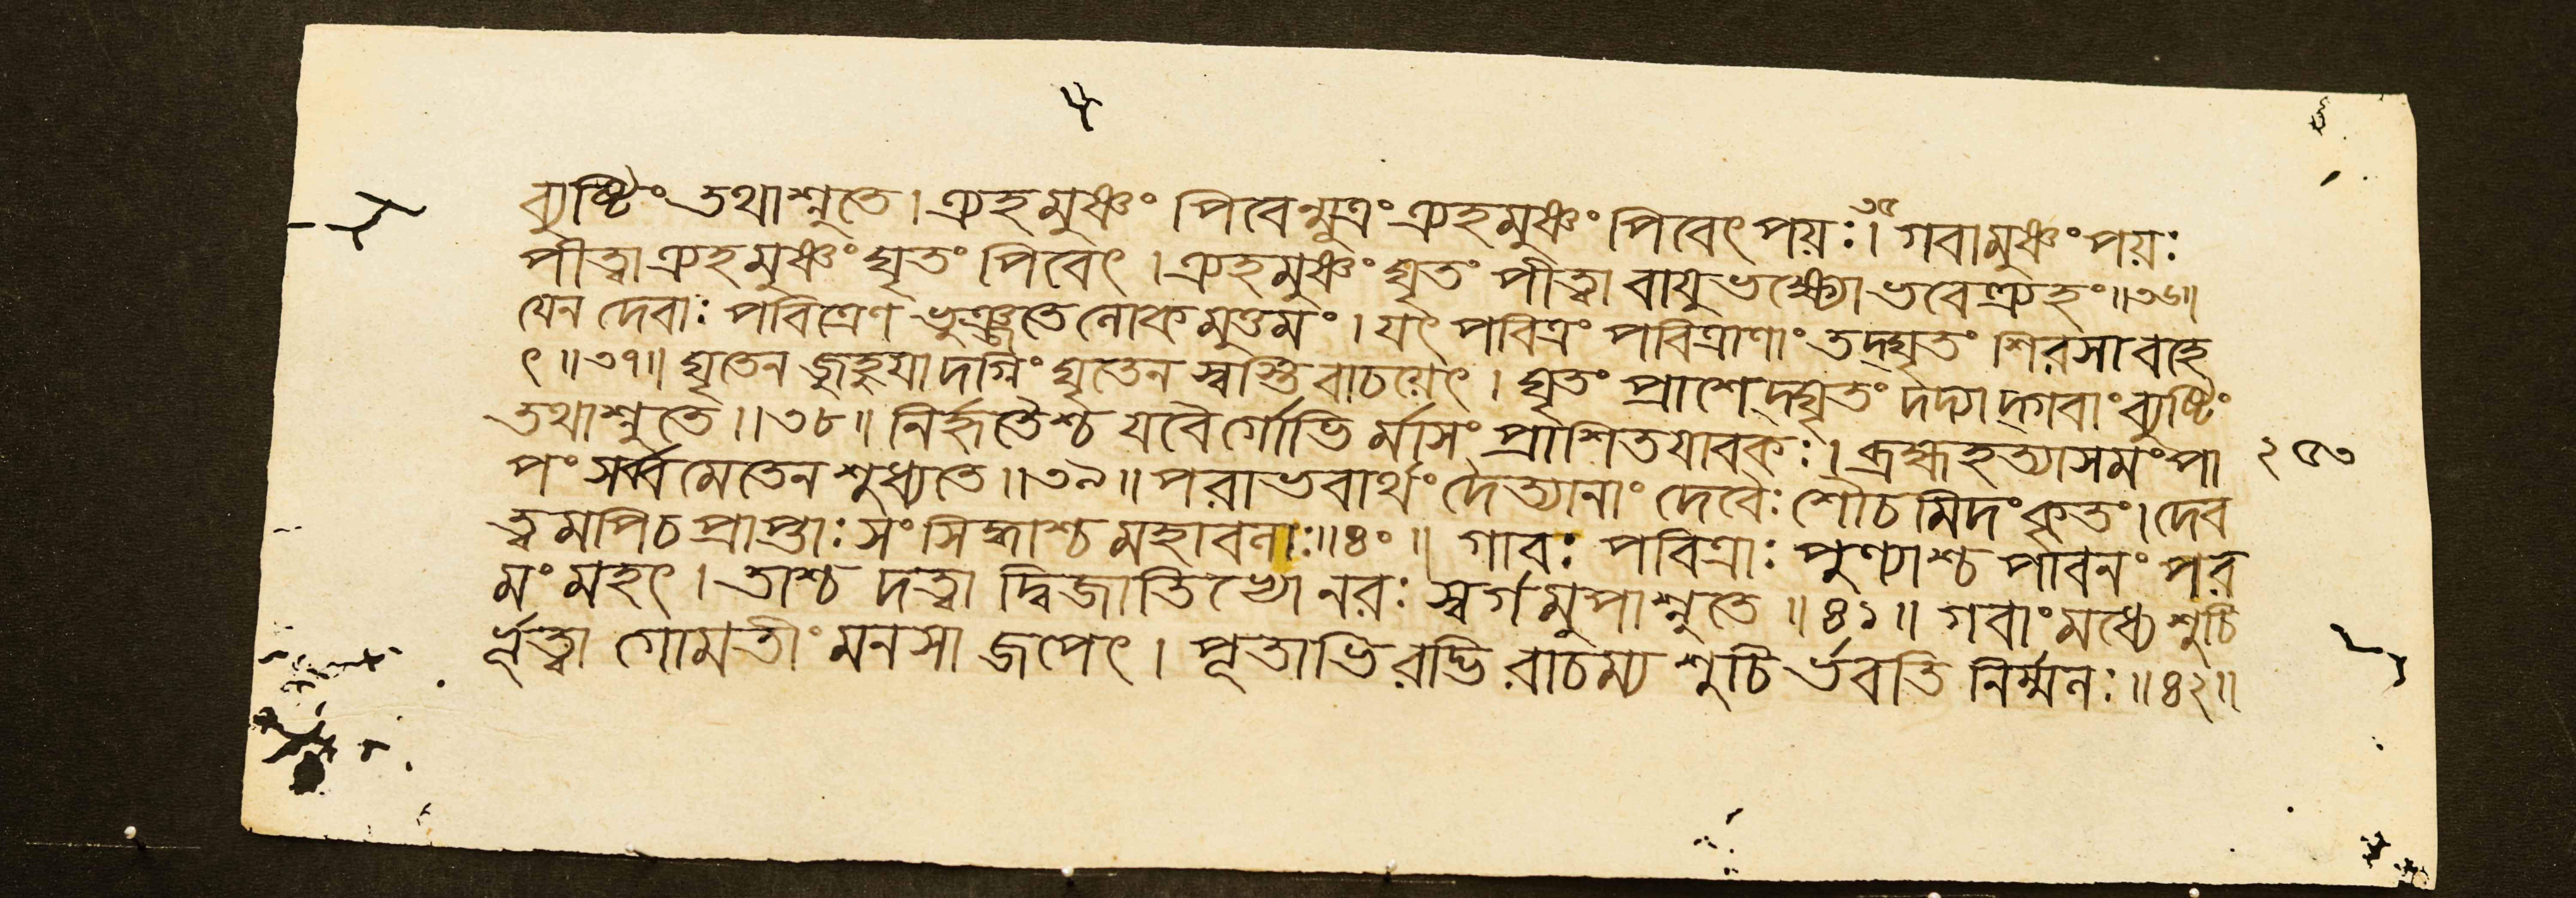 ব্যুষ্টিং তথাশ্নুতে। ত্র্যহমুষ্ণং পিবেন্মূত্রং ত্র্যহমুষ্ণং পিবেৎ পয়ঃ।৩৫ গবামুষ্ণং পয়ঃ
পীত্বা ত্র্যহমুষ্ণং ঘৃতং পিবেৎ। ত্র্যহমুষ্ণং ঘৃতং পীত্বা বায়ুভক্ষ্যো ভবেত্র্যহং॥৩৬॥
যেন দেবাঃ পবিত্রেণ ভুঞ্জতে লোকমুত্তমং। যৎ পবিত্রং পবিত্রাণাং তদ্ঘৃতং শিরসা বহে
ৎ॥৩৭॥ ঘৃতেন জুহুয়াদগ্নিং ঘৃতেন স্বস্তি বাচয়েৎ। ঘৃতং প্রাশেদ্ঘৃতং দদ্যাদ্গবাং ব্যুষ্টিং
তথাশ্নুতে॥৩৮॥ নির্হৃতৈশ্চ যবৈর্গোভির্মাসং প্রাশিতযাবকঃ। ব্রহ্মহত্যাসমং পা
পং সর্ব্বমেতেন শুধ্যতে॥৩৯॥ পরাভবার্থং দৈত্যানাং দেবৈঃ শৌচমিদং কৃতং। দেব
ত্বমপি চ প্রাপ্তাঃ সংসিদ্ধাশ্চ মহাবলাঃ॥৪০॥ গাবঃ পবিত্রাঃ পুণ্যাশ্চ পাবনং পর
মং মহৎ। তাশ্চ দত্বা দ্বিজাতিভ্যো নরঃ স্বর্গমুপাশ্নুতে॥৪১॥ গবাং মধ্যে শুচি
র্ভূত্বা গোমতীং মনসা জপেৎ। পূতাভিরদ্ভিরাচম্য শুচির্ভবতি নির্ম্মলঃ॥৪২॥
২৫৩